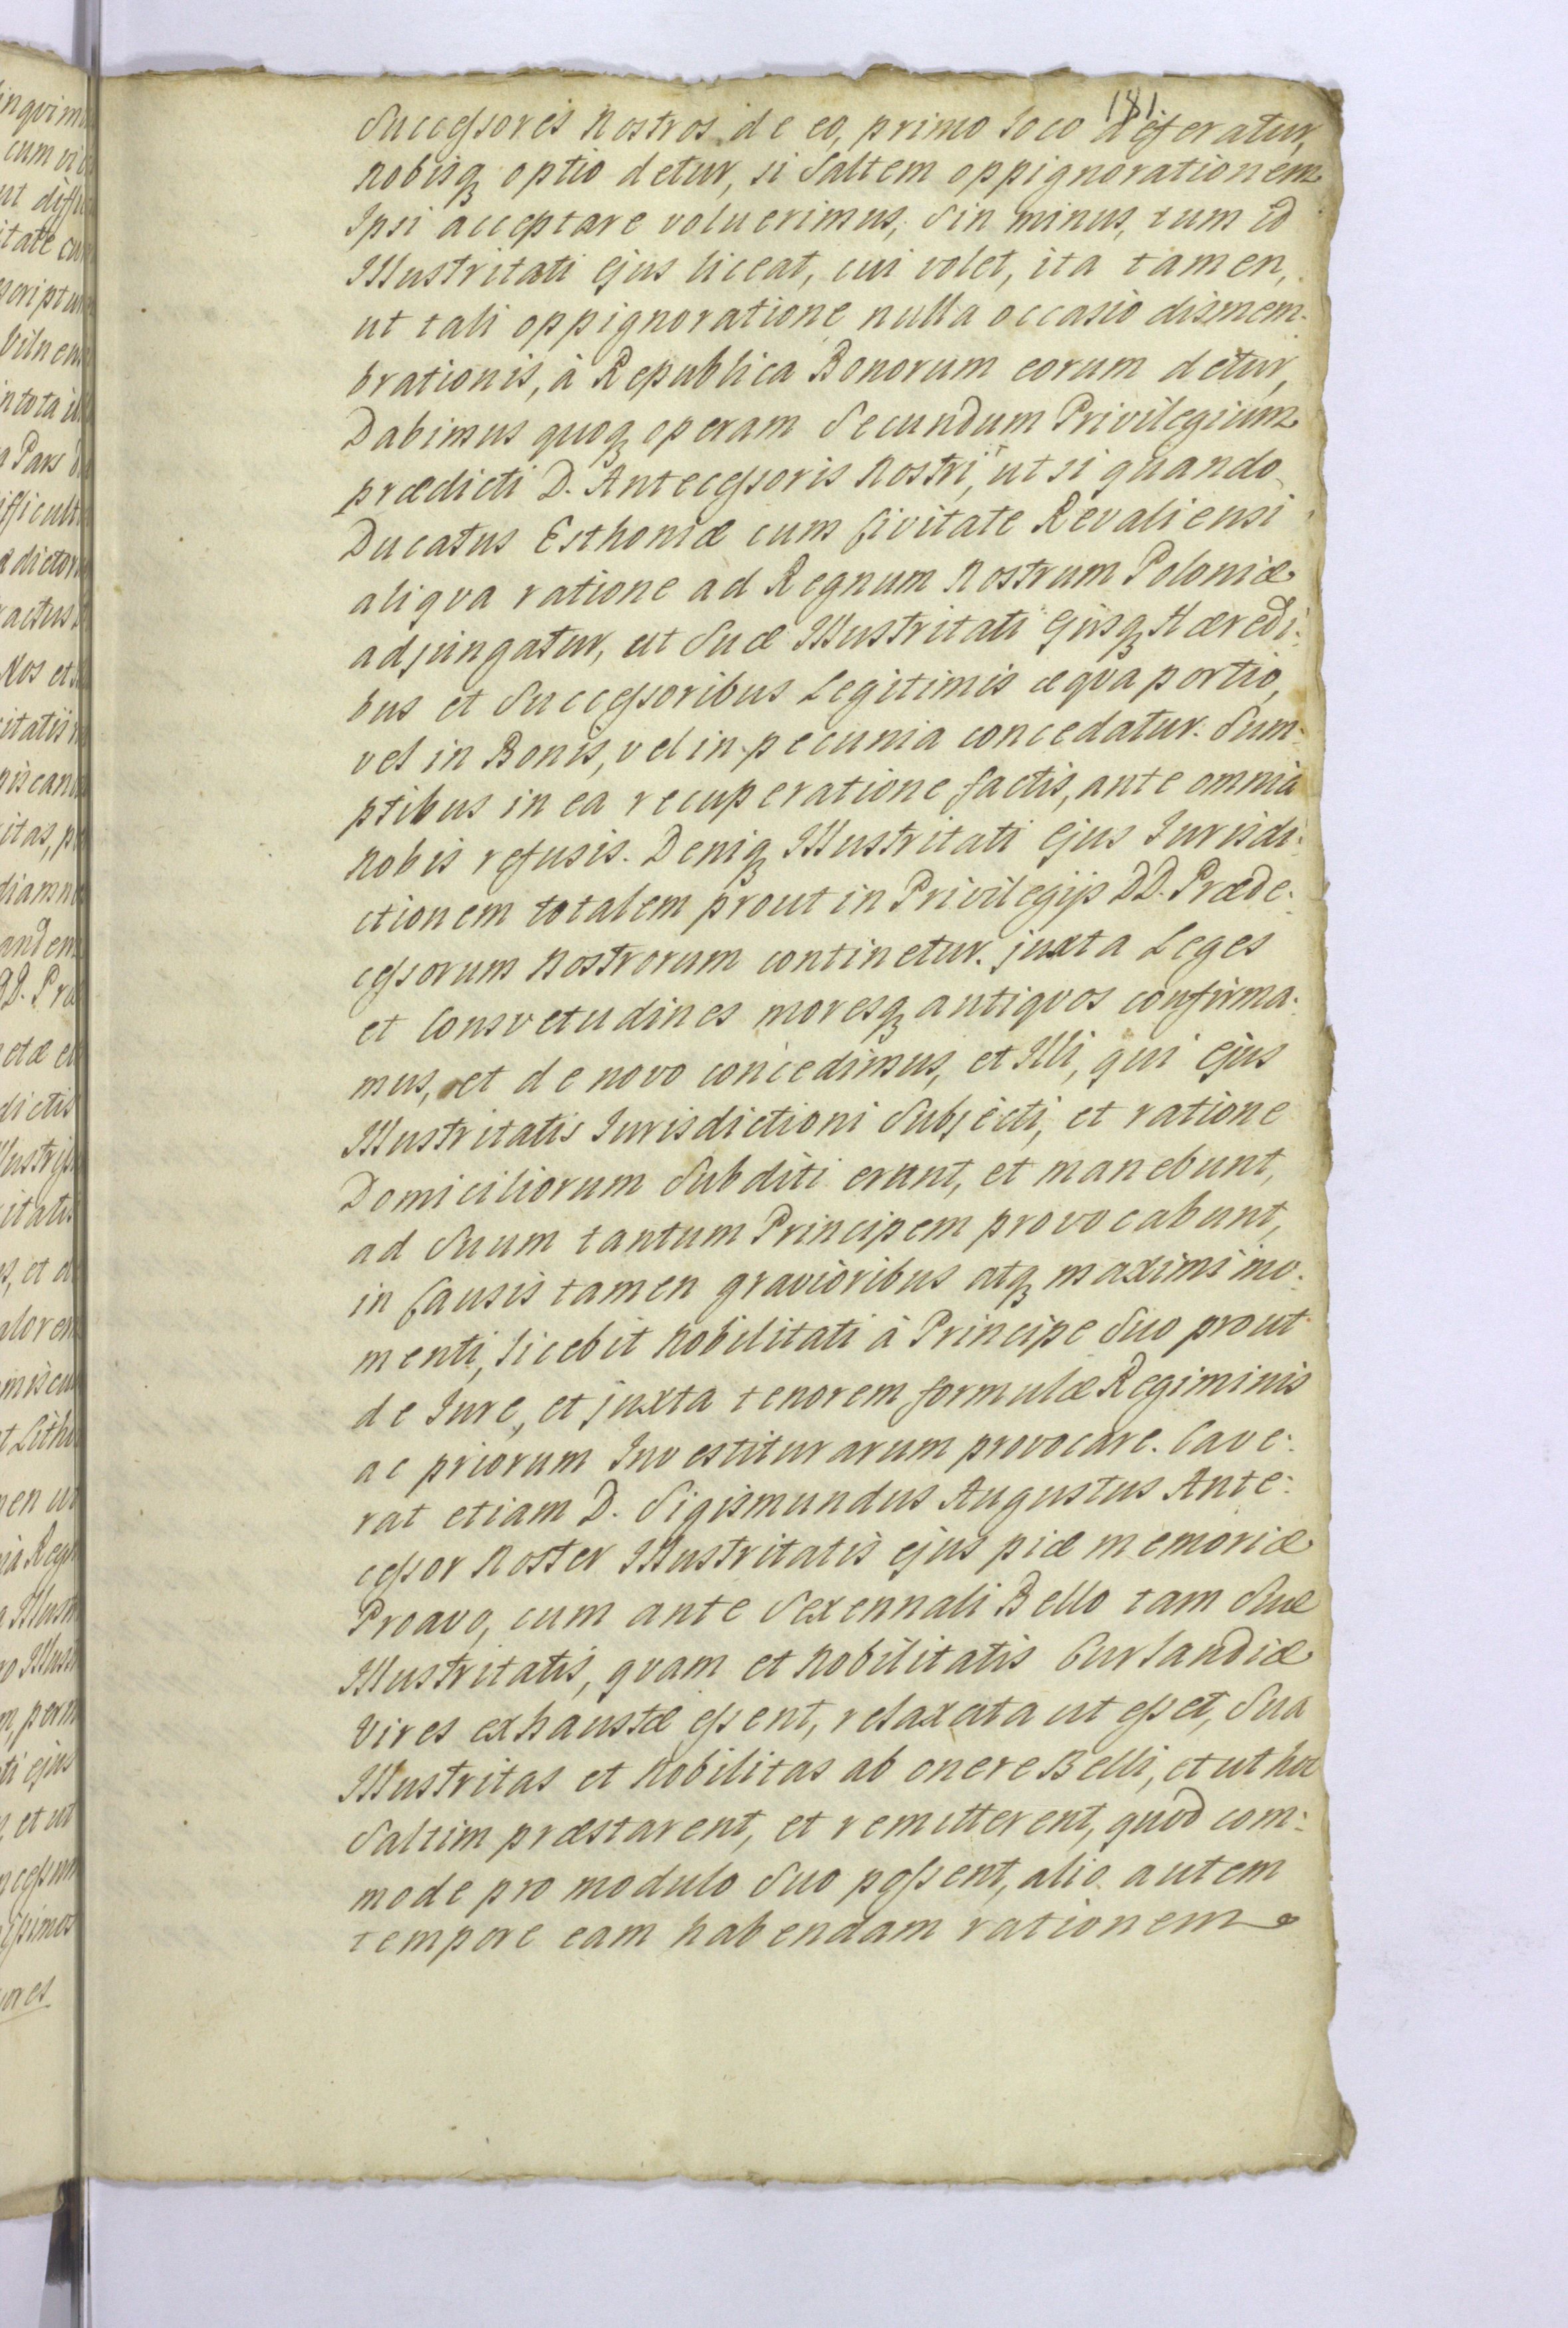 181.
Successores Nostros de eo, primo loco deferatur,
Nobisq; optio detur, si Saltem oppignorationem
Ipsi acceptare voluerimus, Sin minus, tum id
Illustritati Ejus liceat, cui volet, ita tamen,
ut tali oppignoratione nulla occasio dismem-
brationis, à Republica Bonorum eorum detur,
Dabimus quoq; operam Secundum Privilegium
prædicti D. Antecessoris Nostri, ut si quando
Ducatus Esthoniæ cum Civitate Revaliensi
aliqva ratione ad Regnum Nostrum Poloniæ
adjungatur, ut Suæ Illustritati Ejusq; Hæredi:
bus et Successoribus Legitimis æqva portio,
vel in Bonis, vel in pecunia concedatur. Sum:
ptibus in ea recuperatione factis, ante omnia
Nobis refusis. Deniq; Illustritati Ejus Jurisdi:
ctionem totalem prout in Privilegijs DD. Præde:
cessorum Nostrorum continetur. juxta Leges
et Consvetudines moresq; antiqvos confirma:
mus, et de novo concedimus, et Illi, qui Ejus
Illustritatis Jurisdictioni Subjecti, et ratione
Domiciliorum Subditi erunt, et manebunt,
ad Suum tantum Principem provocabunt,
in Causis tamen gravioribus atq; maximi mo:
menti, licebit Nobilitati à Principe Suo prout
de Jure, et juxta tenorem formulæ Regiminis
ac priorum Investiturarum provocare. Cave:
rat etiam D. Sigismundus Augustus Ante:
cessor Noster Illustritatis ejus piæ memoriæ
Proavo, cum ante Sexennali Bello tam Suæ
Illustritatis, qvam et Nobilitatis Curlandiæ
Vires exhaustæ essent, relaxata ut esset, Sua
Illustritas et Nobilitas ab onere Belli, et ut hoc
Saltim præstarent, et remitterent, quod com:
mode pro modulo Suo possent, alio autem
tempore eam habendam rationem